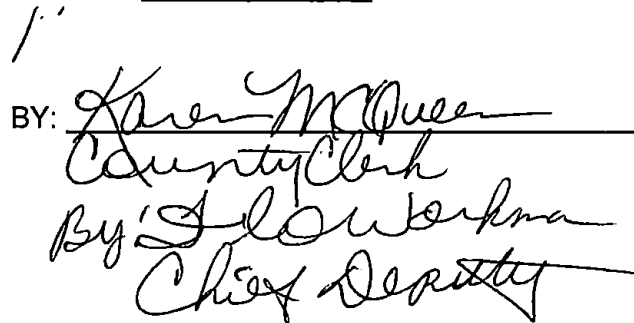 BY: Karen McQueen
County Clerk
By: Workman
Chief Deputy